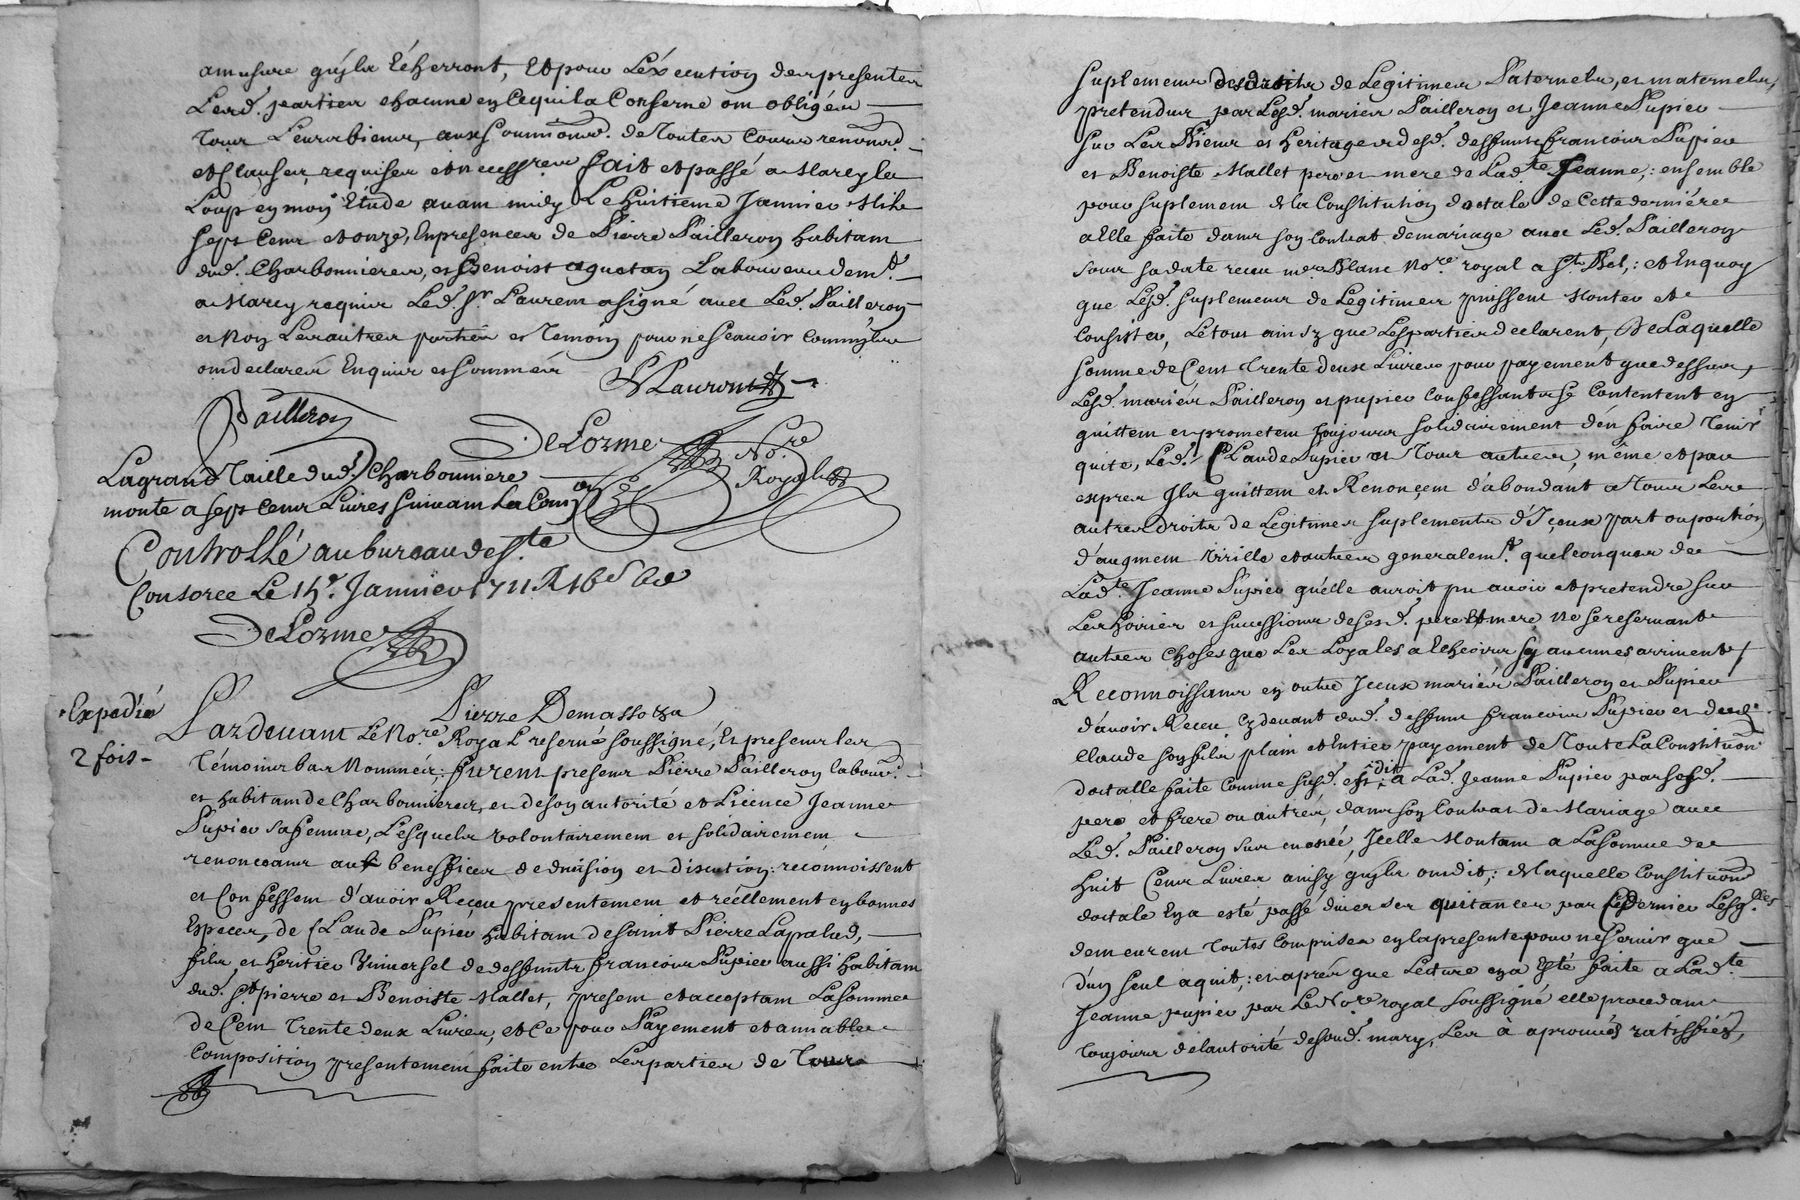 amesure qu'ils Echerront, Et pour L'éxecution des presentes
Lesd. parties chacune en Cequi La Conserne ont obligées
Tous Leurs biens, aux Soumissions de Toutes Cours renond.
et Clauses requises et necessres fait et passé a Marcy les
Loup en mon Etude avant midy Le huitieme Janvier Mil
Sept Cent et onze, En presences de Pierre Pailleron habitant
dud. Charbonnieres, et Benoist Laboureur demt.
a Marcy requis Led. Sr Laurent a signé avec Led. Pailleron
et Non Les autres parties et Temoin pour ne Scavoir Comm'ils
ont declarés Enquis et Sommés
Laurent
Pailleron
DeLorme Nore. Royal
La grand Taille dud. Charbonniere
monte a Sept Cens Livres Suivant La Comon
Controllé au bureau de Ste
Consorce Le 15e. Janvier 1711 R 16s 6d
DeLorme
Expedié
2 fois -
Pierre Demassotza
Pardevant Le Nore. Royal reservé Soussigné, Et presens les
Témoins bas Nommés: furent present Pierre Pailleron labourd.
et habitant de Charbonnieres, et de son autorité et Licence Jeanne
Pupier sa femme, Lesquels volontairement et solidairement
renonceans aux benefices de division et discution: reconnoissent
et Confessent d'avoir Receu presentement et réellement en bonnes
Especes, de Claude Pupier habitant de Saint Pierre Lapalud,
fils et heritier Universel de deffunts françois Pupier aussi habitant
dud. St pierre et Benoiste Mallet, present et acceptant La Somme
de Cent Trente deux Livres, et Ce pour Payement et amiable
Composition presentement faite entre Les parties de Tous
Suplemens desdroits de Legitimes Paternels, et maternels,
pretendus par Lesd. mariés Pailleron et Jeanne Pupier
Sur Les Biens et heritages desd. deffunts françois Pupier
et Benoiste Mallet pere et mere de Ladte. Jeanne,: ensemble
pour suplement de la Constitution dottale de Cette derniére
a Elle faite dans son Contrat de mariage avec Led. Pailleron
sous sa date receu mre Blanc Nore. royal a St. Bel,: et En quoy
que Lesd. suplemens de Legitimes puissent Monter et
Consister, Le tout ainsy que Les parties declarent, De Laquelle
Somme de Cent Trente deux Livres pour payement que dessus,
Lesd. mariés Pailleron et pupier Confessants se Contentent en
quittent et prometent toujours solidairement d'en faire Tenir
quite, Led. Claude Pupier et Tous autres, même et par
exprès Ils quittent et Renonçent d'abondant a Tous Les
autres droits de Legitimes suplements d'Iceux part ou portion,
d'augment Virille et autres generalemt. quelconques de
Ladte Jeanne Pupier qu'elle auroit pu avoir et pretendre sur
Les hoiries et successions de sesd. pere et mere Ne se reservant
autres choses que Les Loyales a Echeoirs sy aucunes arrivent,
Reconnoissans en outre Iceux mariés Pailleron et Pupier
d'avoir Receu Cy devant dud. deffunt françois Pupier et dud.
Claude son fils plain et Entier payement de Toute La Constitution
dottalle faite Comme susd. est dit a Lad. Jeanne Pupier par sesd.
pere et frere ou autres, dans son Contrat de Mariage avec
Led. Pailleron sus enoncé, Icelle Montant a La somme de
huit Cens Livres ainsy qu'ils ont dit,: de laquelle Constitution
dottale En a esté passé diverses quitances par Ce dernier Lesqlles
demeurent Toutes Comprises en la presente pour ne servir que
d'un seul aquit,: et aprés que Lecture en a Esté faite a Ladte
Jeanne pupier par Le Nore royal soussigné elle procedant
Toujours de l'autorité de sond. mary, Les à aprouvés ratiffiés,